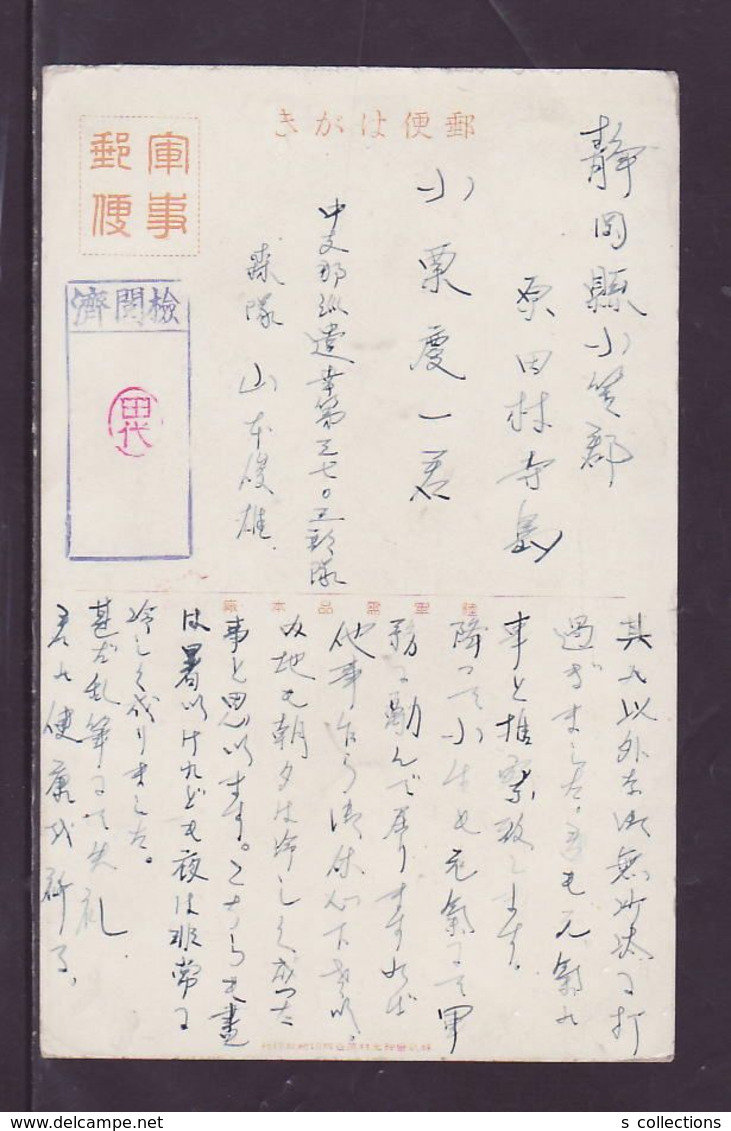 郵便はがき
軍事
郵便
檢閲濟
田代
静岡縣小笠郡
原田村寺島
小栗慶一君
中支那派遣幸第三七〇三部隊
森隊 山本俊雄
陸軍 品本廠
其れ以外存外御無沙汰に打
過ぎました。君も元氣な
事と推察致します。
降って小生も元氣にて軍
務に勵んで居りますれば
他事乍ら御休心下さい。
内地も朝夕は冷しくなった
事と思います。こちらも晝
は暑いけれども夜は非常に
冷しく成りました。
甚だ乱筆にて失礼
君の健康を祈る、
s collections